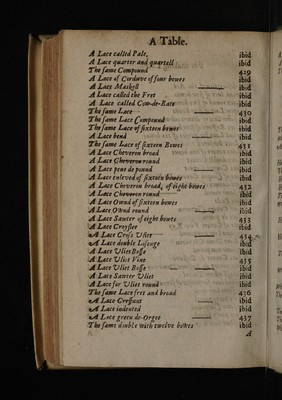 A Table.
A Lace called Pale, ibid
A Lace quarter and quartell ibid
The same Compound 429
A Lace of Corduve of four bowes ibid
A Lace Maskell ibid
A Lace called the Fret ibid
A Lace called Cow-de-Rate ibid
The same Lace 430
A Lace Compound ibid
The same Lace of sixteen bowes ibid
A Lace bend ibid
The same Lace of sixteen Bowes 431
A Lace Cheveron broad ibid
A Lace Cheveron round ibid
A Lace pent de pound ibid
A Lace of sixteen bowes ibid
A Lace Cheveron broad, of eight bowes 432
A Lace Cheveron round ibid
A Lace Ownd of sixteen bowes ibid
A Lace Ownd round ibid
A Lace Sawter of eight bowes 433
A Lace Creyslee ibid
A Lace Cross Vliet 434
A Lace double Lisenge ibid
A Lace Vliet Bosse ibid
A Lace Vliet 435
A Lace Vliet Bosse ibid
A Lace Sawter Vliet ibid
A Lace for Vliet round ibid
The same Lace fret and broad 436
A Lace ibid
A Lace indented ibid
A Lace green de-Orges 437
The same double with twelve bowes ibid
A